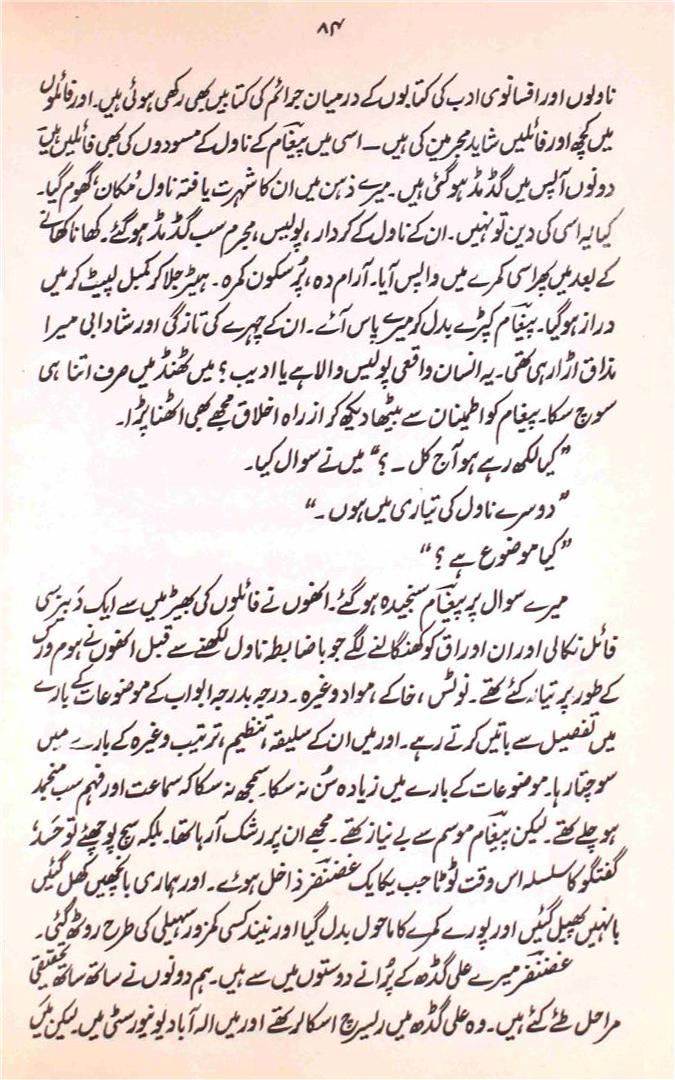 ۸۴
ناولوں اور افسانوی ادب کی کتابوں کے درمیان جرائم کی کتابیں بھی رکھی ہوئی ہیں۔ اور فائلوں
میں کچھ اور فائلیں شاید مجرمین کی ہیں — اسی میں پیغام کے ناول کے مسودوں کی بھی فائلیں ہیں
دونوں آپس میں گڈمڈ ہو گئی ہیں۔ میرے ذہن میں ان کا شہرت یافتہ ناول ’مکان‘ گھوم گیا۔
کیا یہ اسی کی دین تو نہیں۔ ان کے ناول کے کردار، پولیس، مجرم سب گڈمڈ ہو گئے۔ کھانا کھانے
کے بعد میں پھر اسی کمرے میں واپس آیا۔ آرام دہ، پُرسکون کمرہ۔ ہیٹر جلا کر کمبل لپیٹ کر میں
دراز ہو گیا۔ پیغام کپڑے بدل کر میرے پاس آئے۔ ان کے چہرے کی تازگی اور شادابی میرا
مذاق اڑا رہی تھی۔ یہ انسان واقعی پولیس والا ہے یا ادیب؟ میں ٹھنڈ میں صرف اتنا ہی
سوچ سکا۔ پیغام کو اطمینان سے بیٹھا دیکھ کر از راہ اخلاق مجھے بھی اٹھنا پڑا۔
”کیا لکھ رہے ہو آج کل ۔ ؟“ میں نے سوال کیا۔
”دوسرے ناول کی تیاری میں ہوں ۔“
”کیا موضوع ہے ؟“
میرے سوال پر پیغام سنجیدہ ہو گئے۔ انھوں نے فائلوں کی بھیڑ میں سے ایک دَبیز سی
فائل نکالی اور ان اوراق کو کھنگالنے لگے جو باضابطہ ناول لکھنے سے قبل انھوں نے ہوم ورک
کے طور پر تیار کئے تھے۔ نوٹس، خاکے، مواد وغیرہ۔ درجہ بدرجہ ابواب کے موضوعات کے بارے
میں تفصیل سے باتیں کرتے رہے۔ اور میں ان کے سلیقہ، تنظیم، ترتیب وغیرہ کے بارے میں
سوچتا رہا۔ موضوعات کے بارے میں زیادہ سُن نہ سکا۔ سمجھ نہ سکا کہ سماعت اور فہم سب منجمد
ہو چلے تھے۔ لیکن پیغام موسم سے بے نیاز تھے۔ مجھے ان پر رشک آ رہا تھا۔ بلکہ سچ پوچھئے تو حَسَدْ
گفتگو کا سلسلہ اس وقت ٹوٹا جب یکایک غضنفر داخل ہوئے۔ اور ہماری بانچھیں کھل گئیں
بانہیں پھیل گئیں اور پورے کمرے کا ماحول بدل گیا اور نیند کسی کمزور سہیلی کی طرح روٹھ گئی۔
غضنفر میرے علی گڈھ کے پُرانے دوستوں میں سے ہیں۔ ہم دونوں نے ساتھ ساتھ تحقیقی
مراحل طے کئے ہیں۔ وہ علی گڈھ میں ریسرچ اسکالر تھے اور میں الہ آباد یونیورسٹی میں۔ لیکن میں